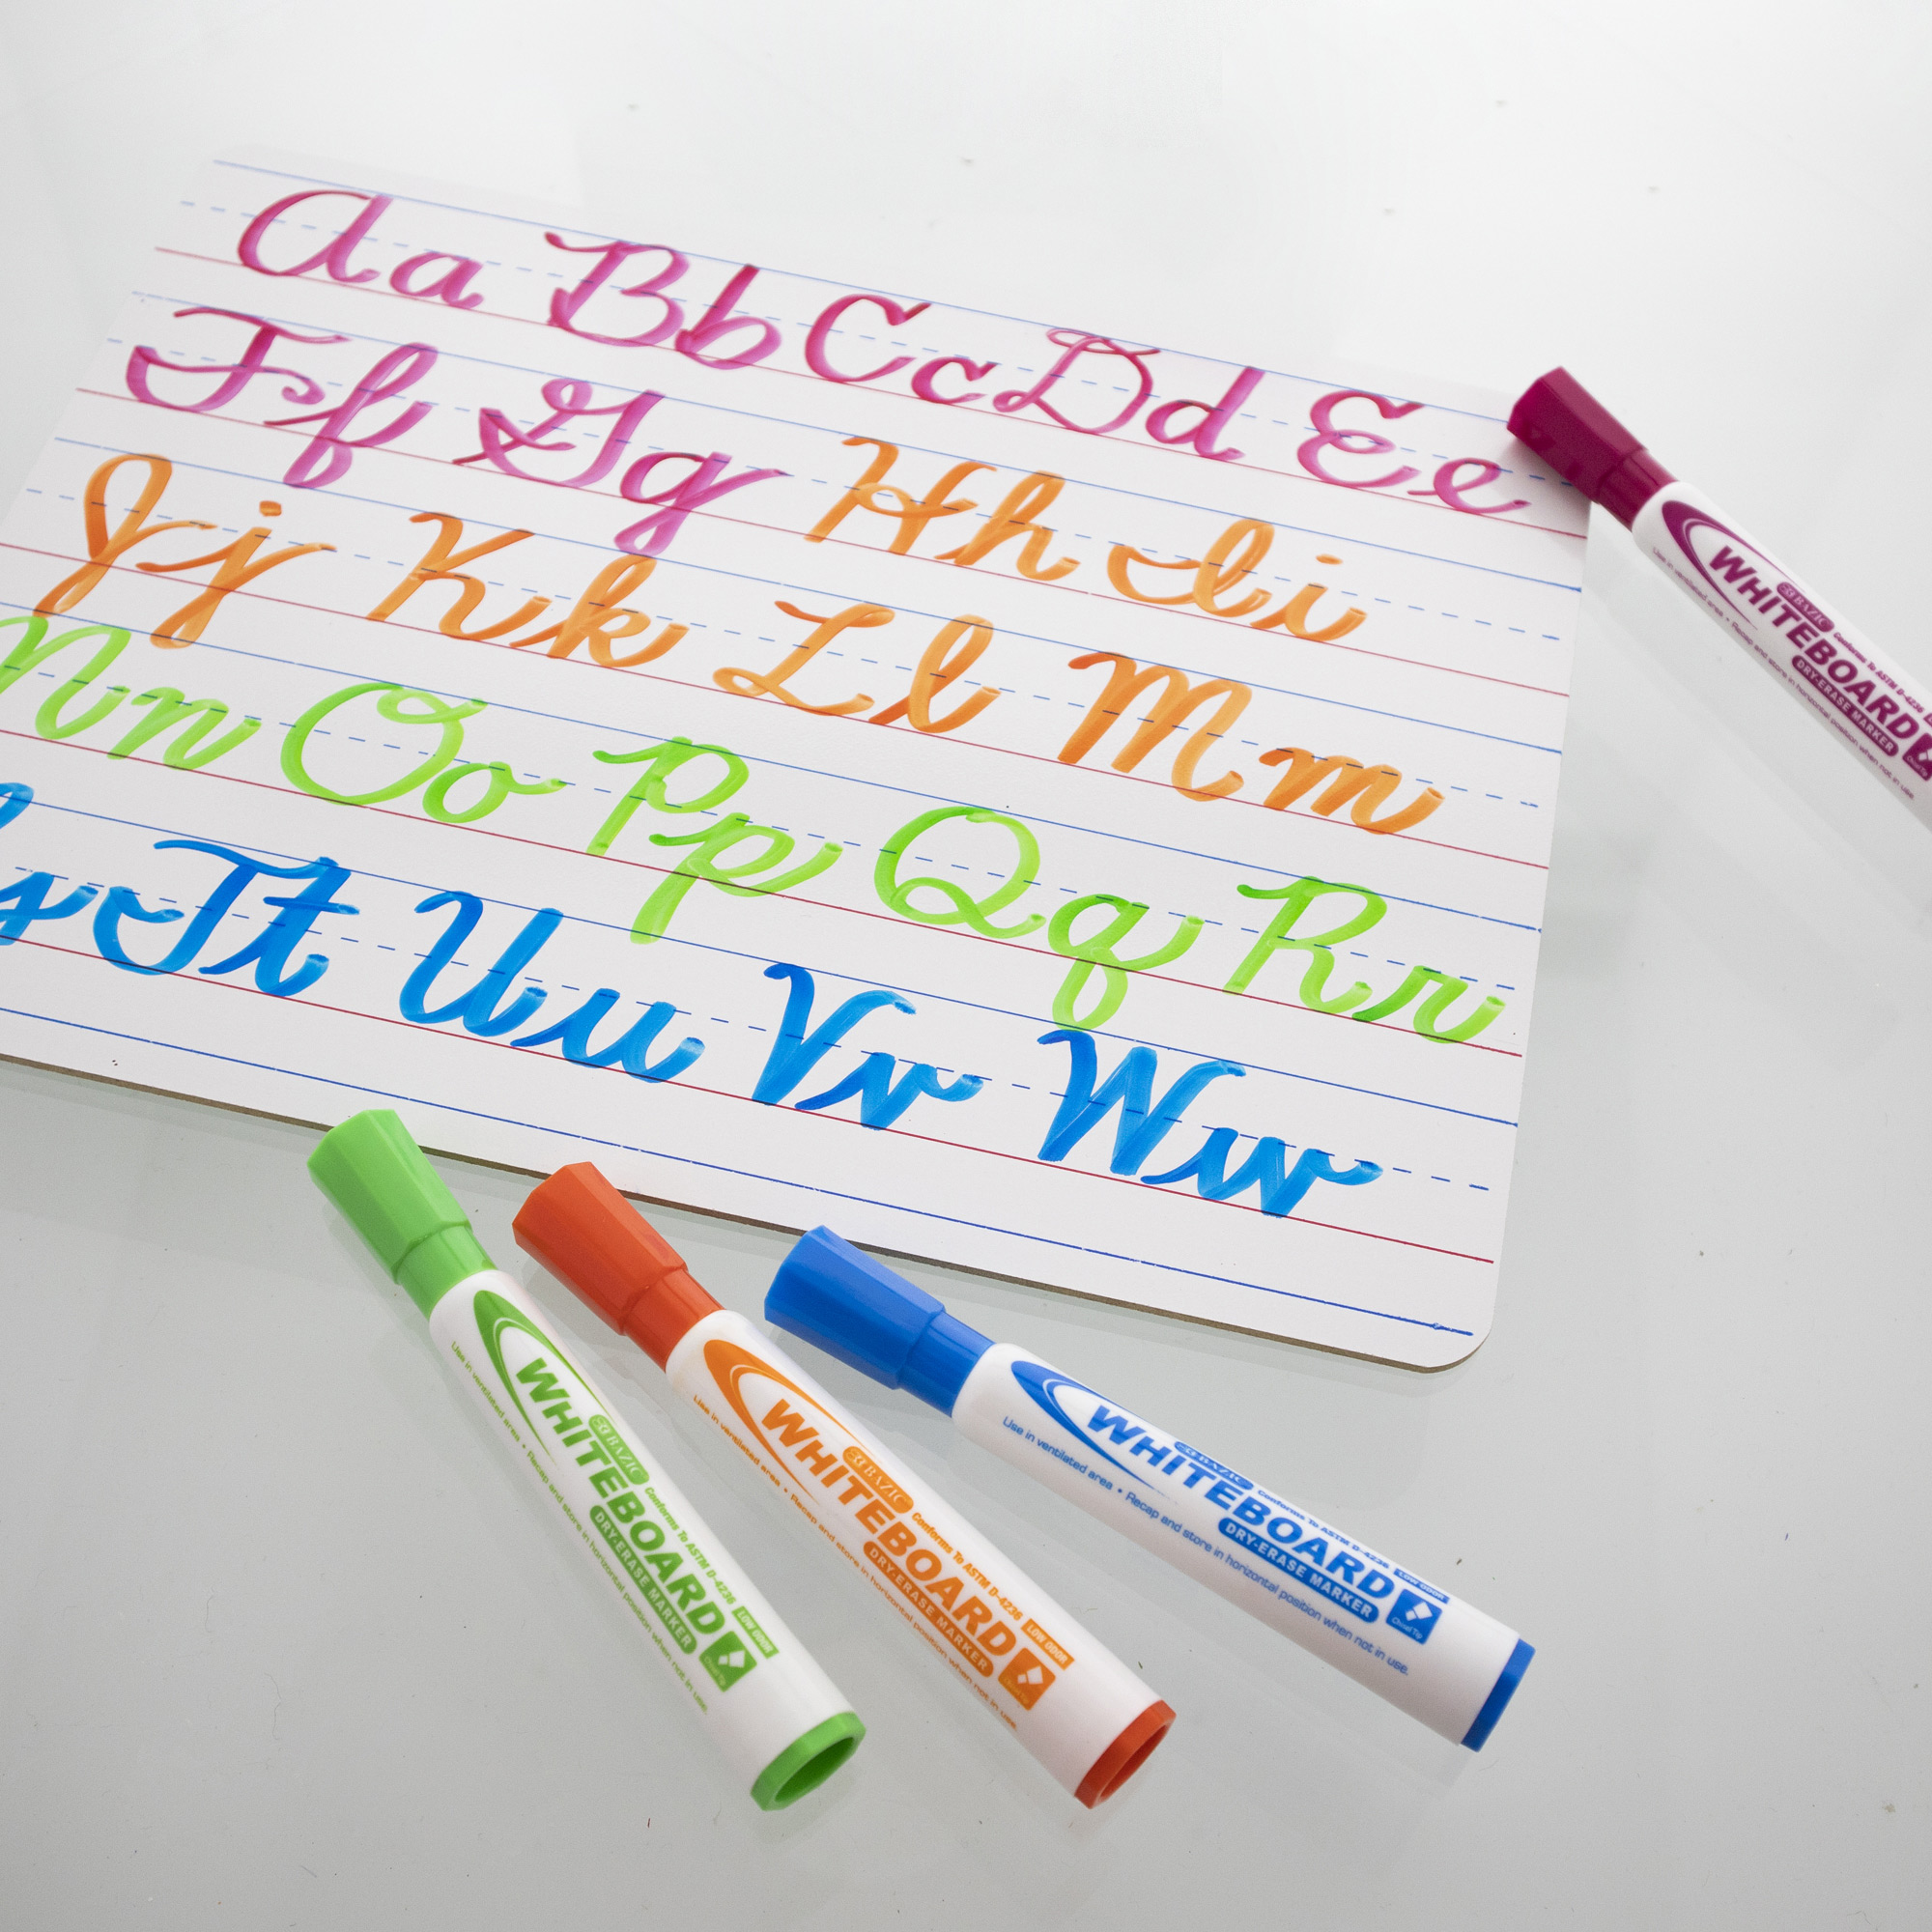 Aa Bb Cc Dd Ee
Ff Gg Hh Ii
Jj Kk Ll Mm
Nn Oo Pp Qq Rr
s Tt Uu Vv Ww
BAZIC
WHITEBOARD
Conforms To ASTM D-4236
DRY-ERASE MARKER
Use in ventilated area • Recap and store in horizontal position when not in use.
BAZIC
WHITEBOARD
Conforms To ASTM D-4236 LOW ODOR
DRY-ERASE MARKER
Chisel Tip
Use in ventilated area • Recap and store in horizontal position when not in use.
BAZIC
WHITEBOARD
Conforms To ASTM D-4236 LOW ODOR
DRY-ERASE MARKER
Chisel Tip
Use in ventilated area • Recap and store in horizontal position when not in use.
BAZIC
WHITEBOARD
Conforms To ASTM D-4236 LOW ODOR
DRY-ERASE MARKER
Chisel Tip
Use in ventilated area • Recap and store in horizontal position when not in use.